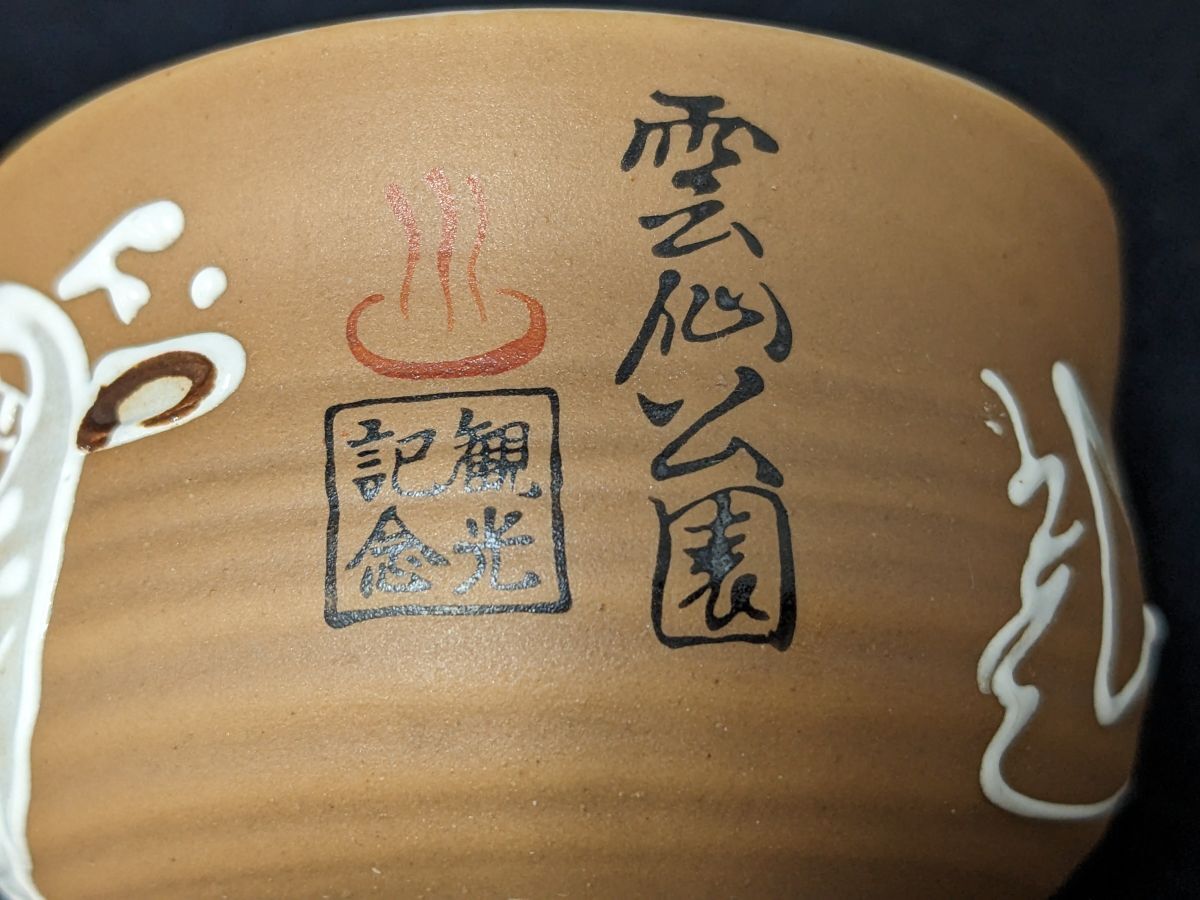 雲仙公園
観光
記念